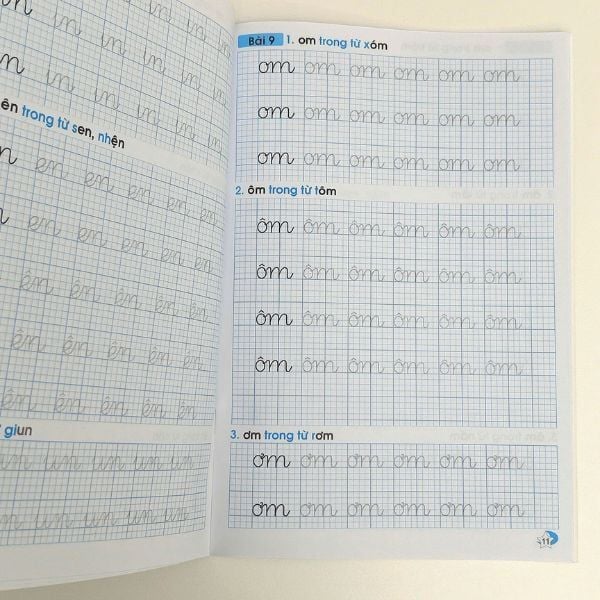 in in in in in
in in in in in
in in in in in
ên trong từ sen, nhện
en en en en en
en en en en en
ên ên ên ên ên
ên ên ên ên ên
ên ên ên ên ên
giun
un un un un un
un un un un un
Bài 9 1. om trong từ xóm
om om om om om om
om om om om om om
om om om om om om
2. ôm trong từ tôm
ôm ôm ôm ôm ôm ôm
ôm ôm ôm ôm ôm ôm
ôm ôm ôm ôm ôm ôm
ôm ôm ôm ôm ôm ôm
3. ơm trong từ rơm
ơm ơm ơm ơm ơm ơm
ơm ơm ơm ơm ơm ơm
11